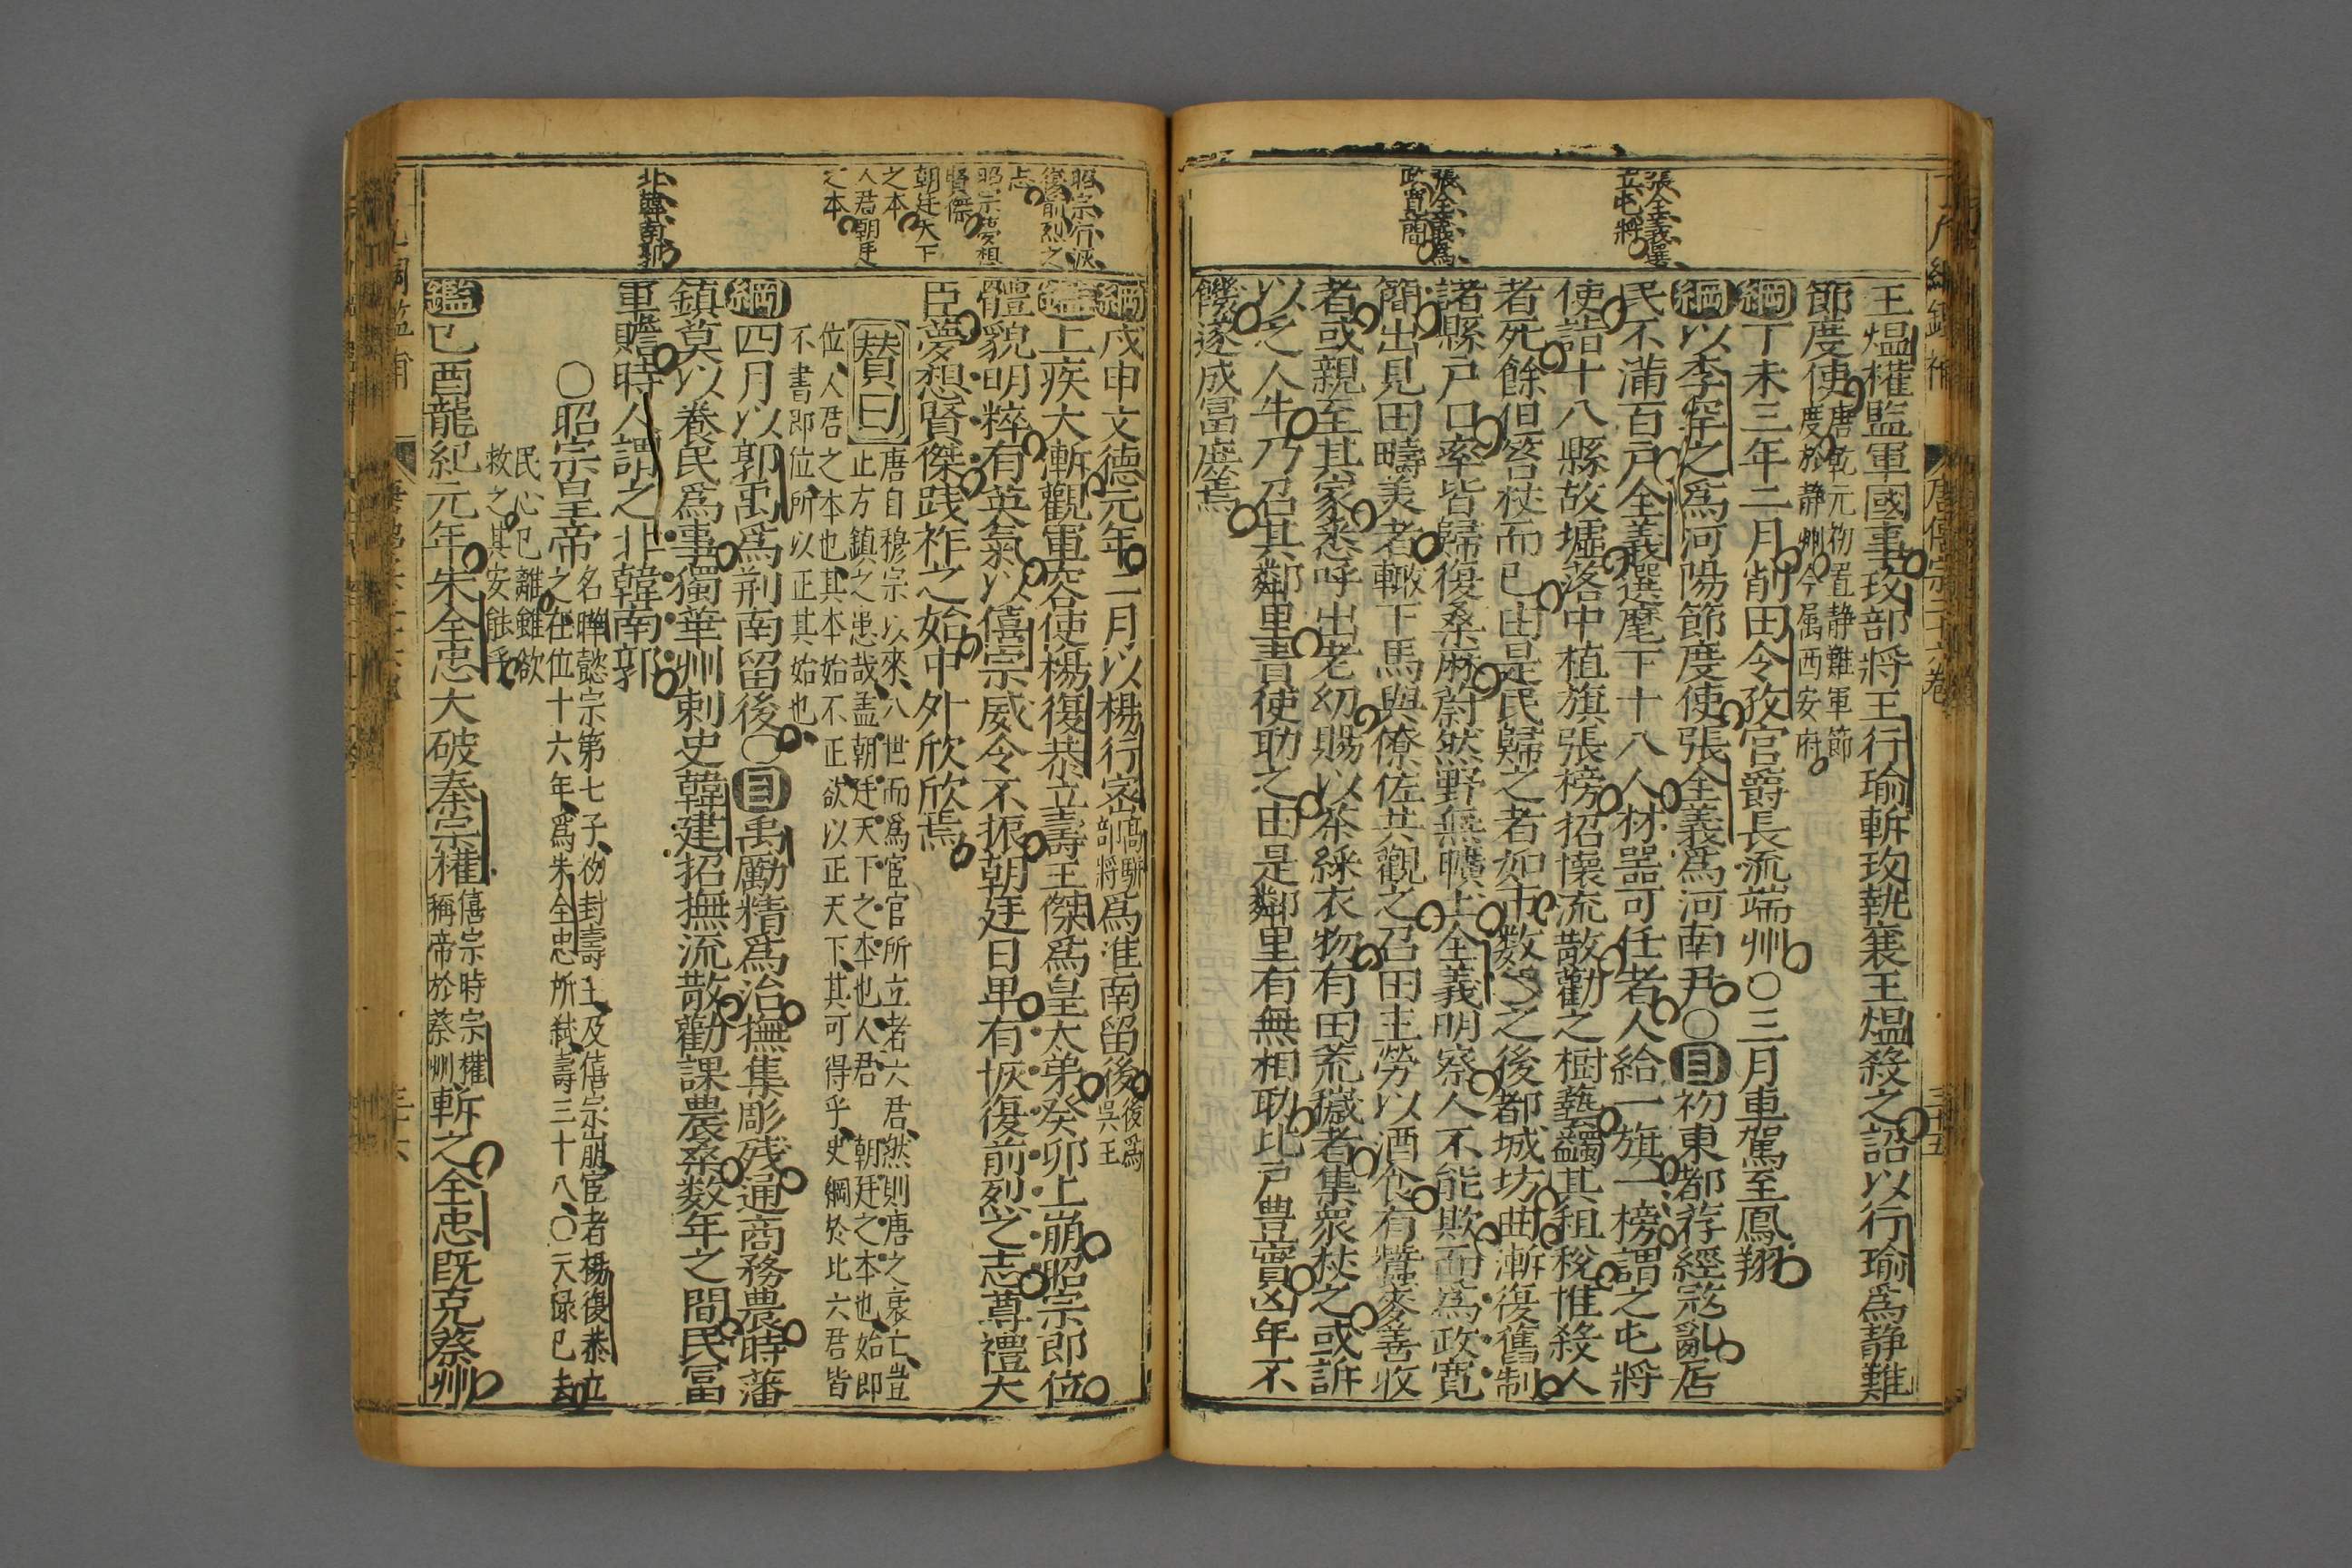 張全義選
立屯將
張全義爲
政寬簡
王熅權監軍國事玫部將王行瑜斬玫執襄王熅殺之詔以行瑜爲静難
節度使唐乾元初置静難軍節
度於静州今属西安府
綱丁未三年二月削田令孜官爵長流端州○三月車駕至鳳翔
綱以李罕之爲河陽節度使張全義爲河南尹○目初東都荐經寇亂居
民不滿百戶全義選麾下十八人材器可任者人給一旗一榜謂之屯將
使詣十八縣故墟落中植旗張榜招懷流散勸之樹藝蠲其租稅惟殺人
者死餘但笞杖而已由是民歸之者如市数年之後都城坊曲漸復舊制
諸縣戶口率皆歸復桑麻蔚然野無曠土全義明察人不能欺而爲政寬
簡出見田疇美者輙下馬與僚佐共觀之召田主勞以酒食有蠶麥善收
者或親至其家悉呼出老幼賜以茶綵衣物有田荒穢者集衆杖之或訴
以乏人牛乃召其鄰里責使助之由是鄰里有無相助比戶豊實凶年不
饑遂成富庶焉
昭宗有恢
復前烈之
志
昭宗夢想
賢傑
朝廷天下
之本
人君朝廷
之本
北韓南郭
綱戊申文德元年二月以楊行密高駢
部將爲淮南留後後爲
吳王
鑑上疾大漸觀軍容使楊復恭立壽王傑爲皇太弟癸卯上崩昭宗即位
體貌明粹有英氣以僖宗威令不振朝廷日卑有恢復前烈之志尊禮大
臣夢想賢傑践祚之始中外欣欣焉
贊曰唐自穆宗以來八世而爲宦官所立者六君然則唐之衰亡豈
止方鎮之患哉盖朝廷天下之本也人君朝廷之本也始即
位人君之本也其本始不正欲以正天下其可得乎史綱於比六君皆
不書即位所以正其始也
綱四月以郭禹爲荆南留後○目禹勵精爲治撫集彫残通商務農時藩
鎮莫以養民爲事獨華州刺史韓建招撫流散勸課農桑数年之間民富
軍贍時人謂之北韓南郭
○昭宗皇帝名曄懿宗第七子初封壽王及僖宗崩宦者楊復恭立
之在位十六年爲朱全忠所弑壽三十八○天禄已去
民心已離雖欲
救之其安能乎
鑑己酉龍紀元年朱全忠大破秦宗權僖宗時宗權
稱帝於蔡州斬之全忠既克蔡州